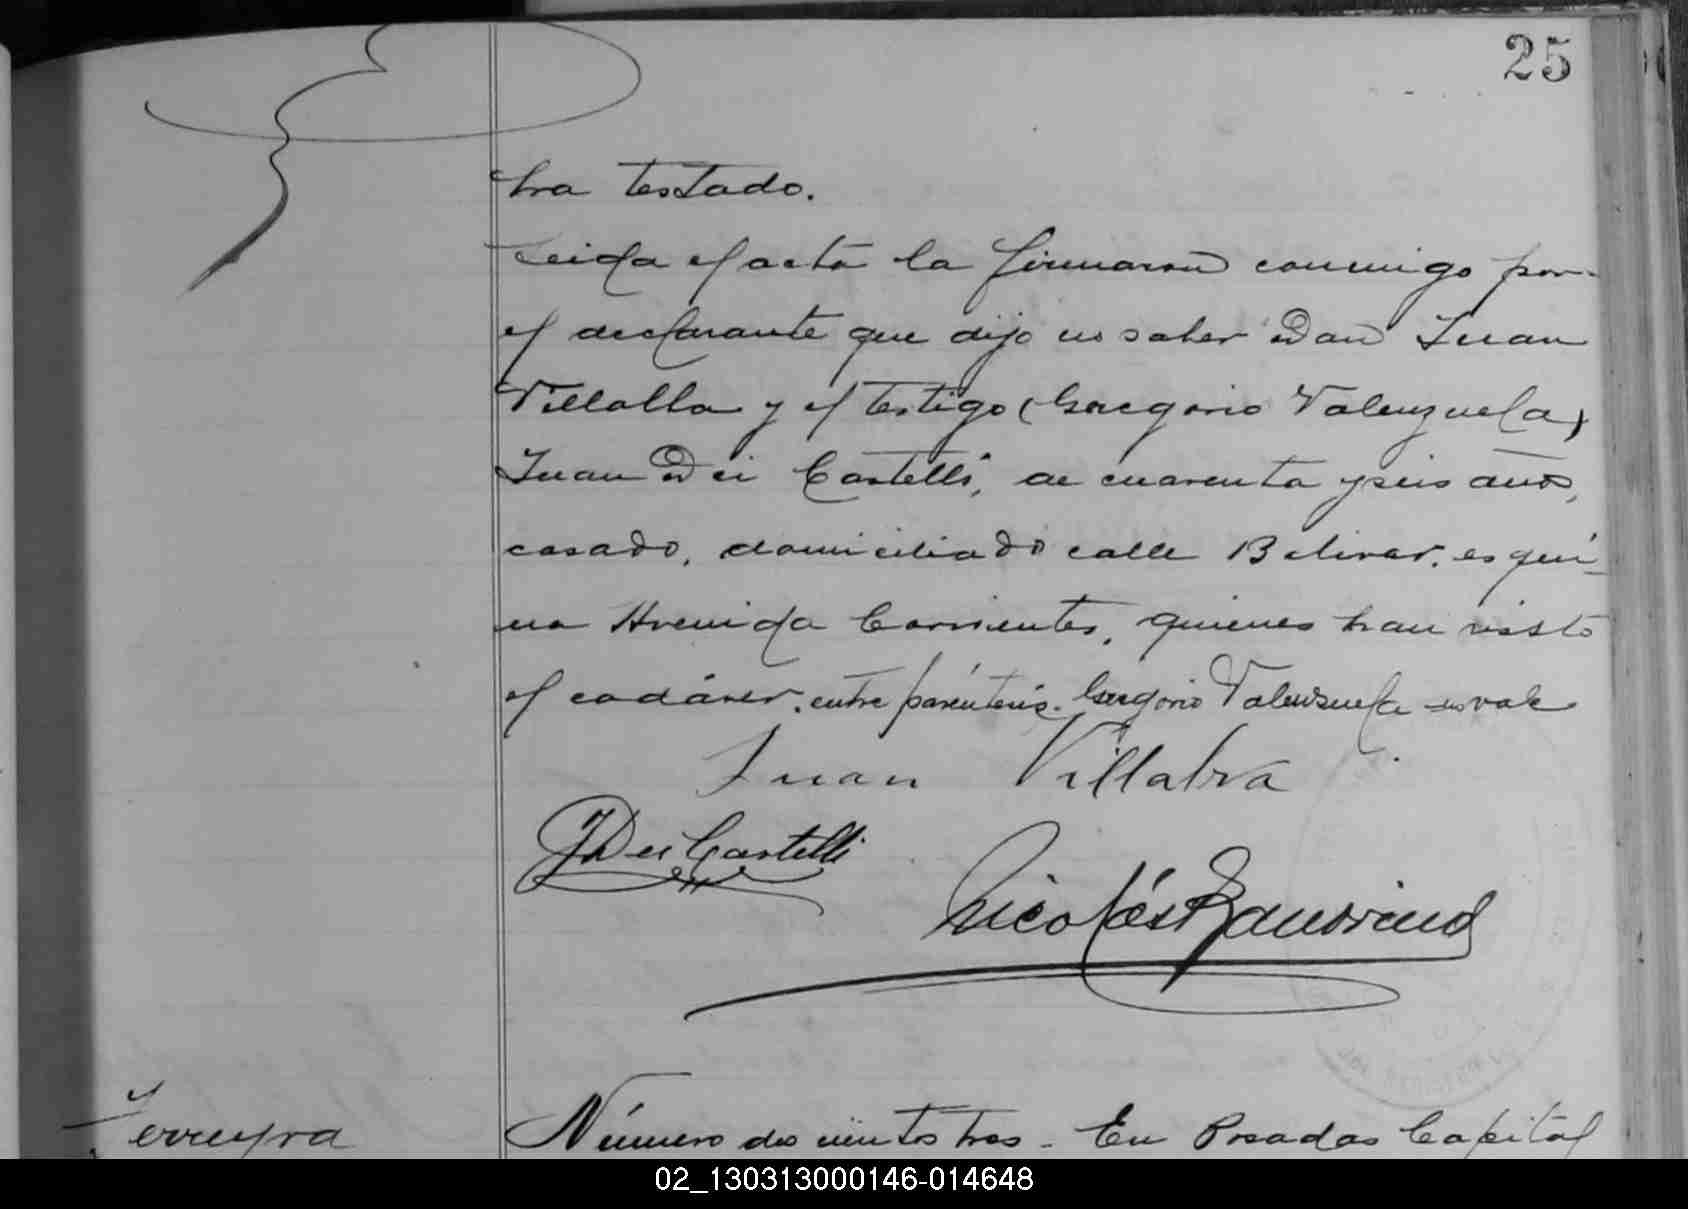 25
bra testado.
Leida el acta la firmaron conmigo por
el declarante que dijo no saber Don Juan
Villalba y el testigo (Gregorio Valenzuela)
Juan Dei Castelli, de cuarenta y seis años,
casado, domiciliado calle Bolivar, esqui-
na Avenida Corrientes, quienes han visto
el cadáver. entre paréntesis. Gregorio Valenzuela no vale
Juan Villalva
J Dei Castelli
Nicolás
Ferreyra
Número doscientos tres - En Posadas Capital
02_130313000146-014648